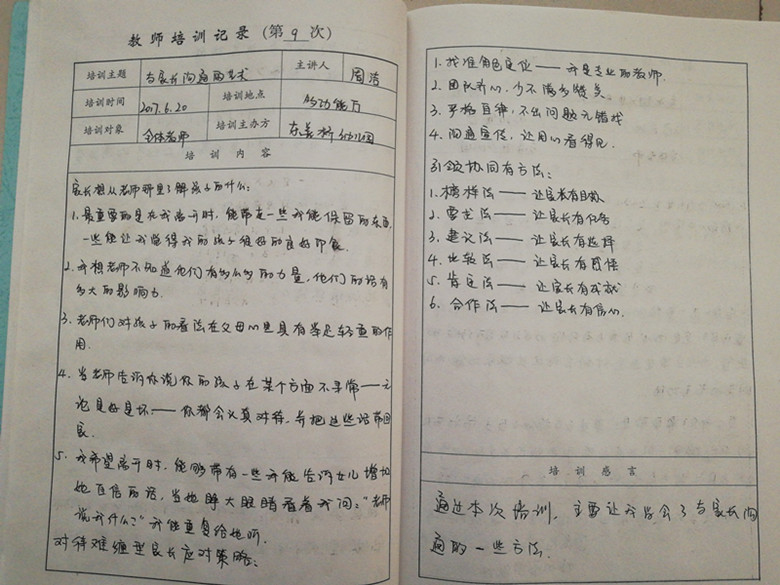 教师培训记录(第 9 次)
培训主题 与家长沟通的艺术 主讲人 周洁
培训时间 2017.6.20 培训地点 多功能厅
培训对象 全体教师 培训主办方 东善桥幼儿园
培训内容
家长想从老师那里了解孩子的什么:
1. 最重要的是在我离开时,能带走一些我能保留的东西,
一些能让我觉得我的孩子很好的良好印象.
2. 我想老师不知道他们有多么多的力量,他们的话有
多大的影响力.
3. 老师们对孩子的看法在父母心里具有举足轻重的作
用.
4. 当老师告诉你说你的孩子在某个方面不寻常——无
论是好是坏——你都会认真对待,并把这些话带回
家.
5. 我希望离开时,能够带有一些我能告诉女儿增加
她自信的话,当她睁大眼睛看着我问:“老师
说我什么?”我能重复给她听.
对待难缠型家长应对策略:
1. 找准角色定位——我是专业的老师.
2. 团队齐心,少不满多赞美.
3. 严格自律,不出问题无错找
4. 沟通宣传,让用心看得见.
引领协同有方法:
1. 榜样法——让家长有目标
2. 雷达法——让家长有分合
3. 建议法——让家长有选择
4. 比较法——让家长有自悟
5. 肯定法——让家长有成就
6. 合作法——让家长有信心.
培训感言
通过本次培训,主要让我学会了与家长沟
通的一些方法.